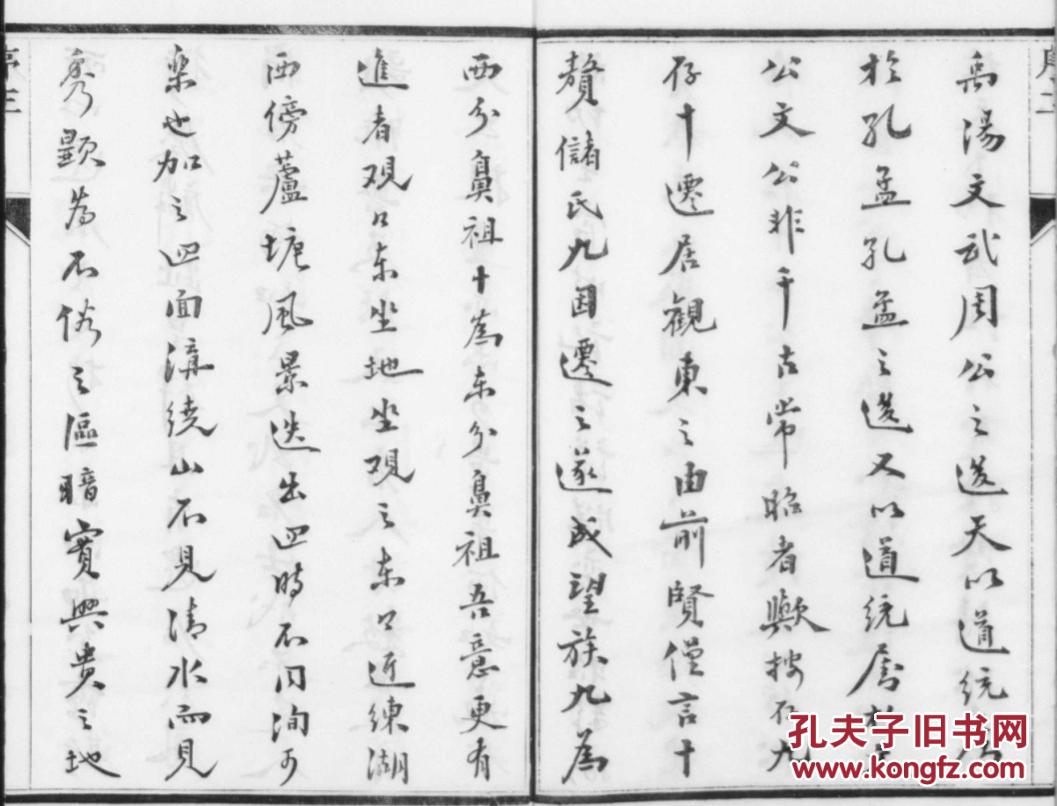 序二
禹湯文武周公之道天以道統
於孔孟孔孟之道又以道統屬
公文公非千古常昭者歟按存九
存十遷居觀東之由前賢僅言十
贅儲氏九因遷之遂成望族九為
西分鼻祖十為东分鼻祖吾意更有
進者观口东坐地坐观之东口近練湖
西傍蘆塘風景迭出四時不同洵可
樂也加之四面濠繞山不見清水而見
秀顯為不俗之區暗實興貴之地
序三
孔夫子旧书网
www.kongfz.com